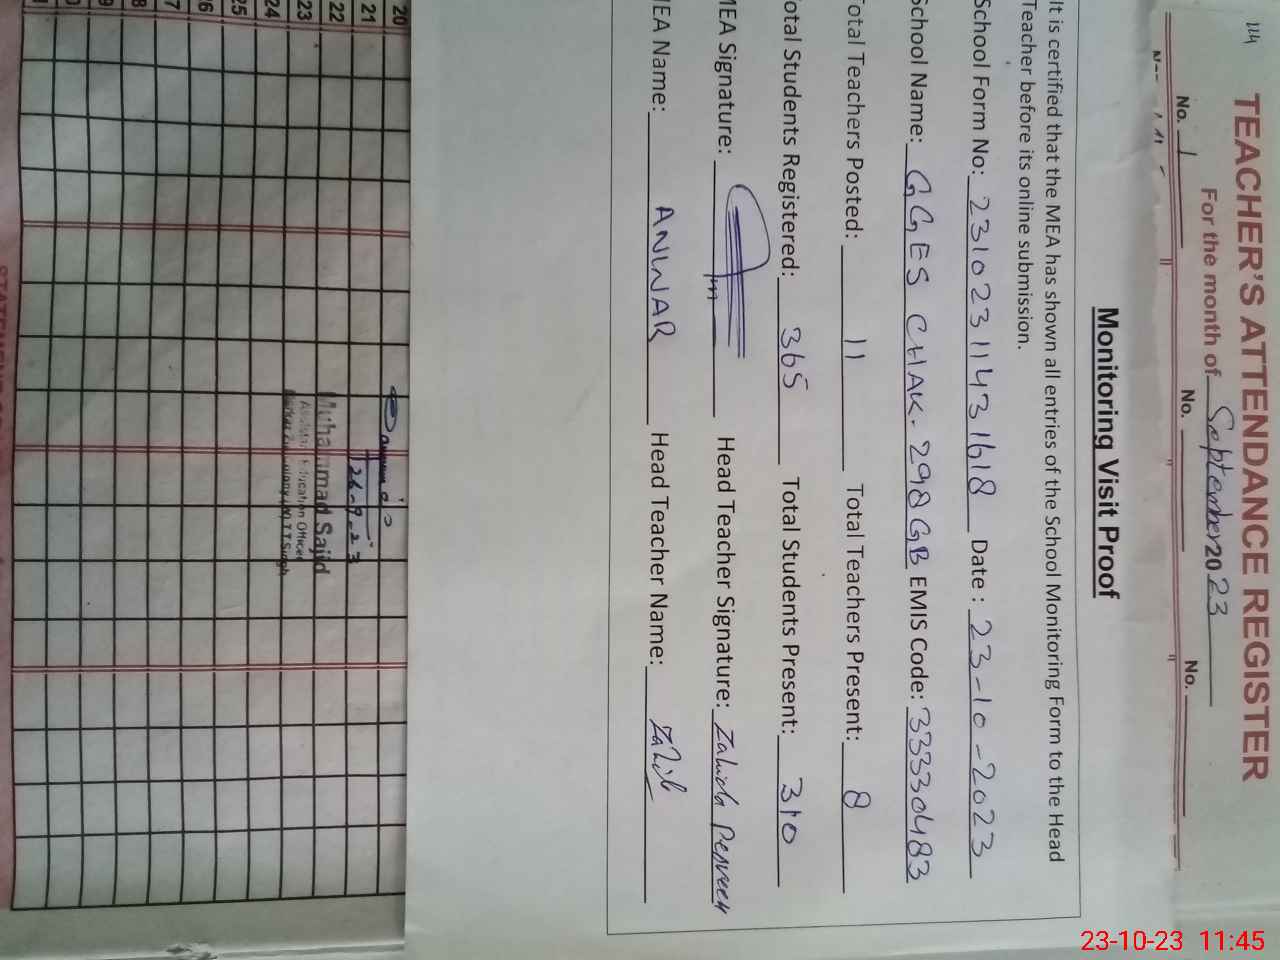 114
TEACHER'S ATTENDANCE REGISTER
For the month of September 2023
No. 1 No. No.
Monitoring Visit Proof
It is certified that the MEA has shown all entries of the School Monitoring Form to the Head
Teacher before its online submission.
School Form No: 23102311431618 Date : 23-10-2023
School Name: GGES CHAK. 298 GB EMIS Code: 33330483
Total Teachers Posted: 11 Total Teachers Present: 8
Total Students Registered: 365 Total Students Present: 310
MEA Signature: Head Teacher Signature: Zahida Perveen
MEA Name: ANWAR Head Teacher Name:
20
21
22
23
24
25
26
27
26-9-23
Muhammad Sajid
Assistant Education Officer
23-10-23 11:45